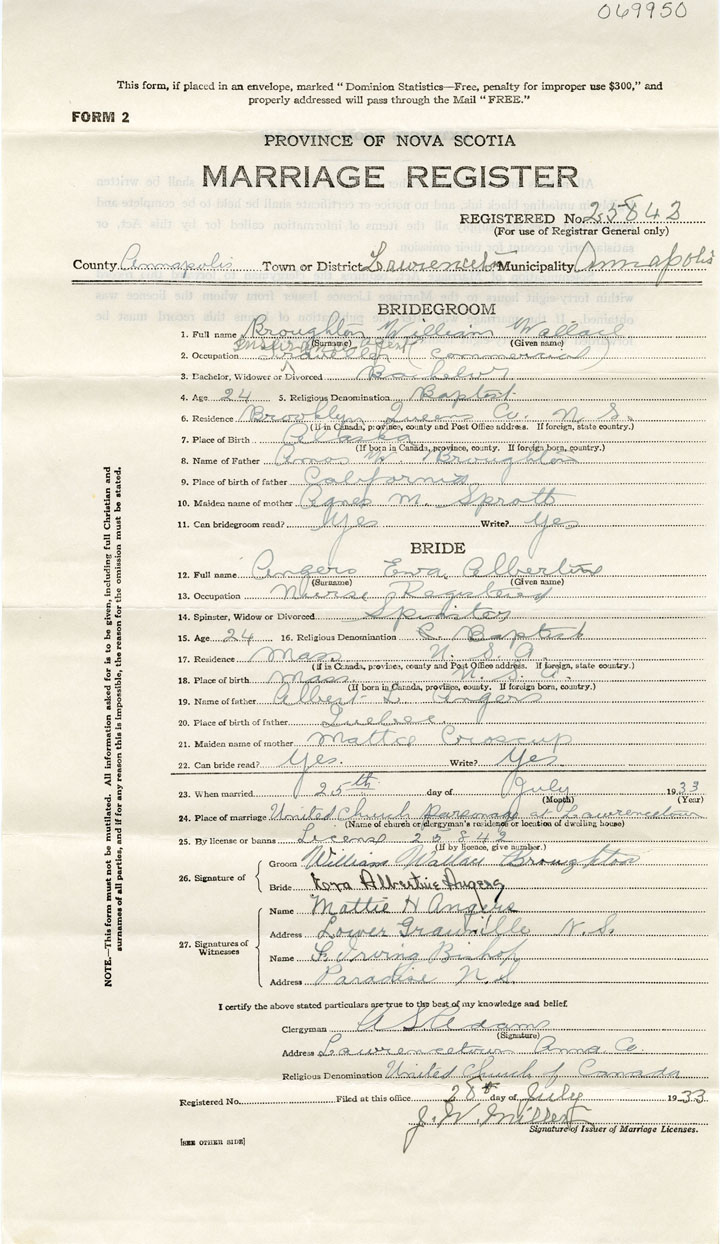 069950
This form, if placed in an envelope, marked "Dominion Statistics—Free, penalty for improper use $300," and
properly addressed will pass through the Mail "FREE."
FORM 2
PROVINCE OF NOVA SCOTIA
MARRIAGE REGISTER
REGISTERED No. 25842
(For use of Registrar General only)
County Annapolis Town or District Lawrencetown Municipality Annapolis
BRIDEGROOM
1. Full name Broughton William Wallace
(Surname) (Given name)
2. Occupation Agent Traveller (Commercial)
3. Bachelor, Widower or Divorced Bachelor
4. Age 24 5. Religious Denomination Baptist
6. Residence Brooklyn Queens Co. N. S.
(If in Canada, province, county and Post Office address. If foreign, state country.)
7. Place of Birth Alaska
(If born in Canada, province, county. If foreign born, country.)
8. Name of Father Amos W. Broughton
9. Place of birth of father California
10. Maiden name of mother Agnes M. Sprott
11. Can bridegroom read? Yes Write? Yes
BRIDE
12. Full name Angers Eva Albertine
(Surname) (Given name)
13. Occupation Nurse Registered
14. Spinster, Widow or Divorced Spinster
15. Age 24 16. Religious Denomination Baptist
17. Residence Mass. U. S. A.
(If in Canada, province, county and Post Office address. If foreign, state country.)
18. Place of birth Mass. U. S. A.
(If born in Canada, province, county. If foreign born, country.)
19. Name of father Albert L. Angers
20. Place of birth of father Quebec
21. Maiden name of mother Mattie Croscup
22. Can bride read? Yes. Write? Yes
23. When married 25th day of July 1933
(Month) (Year)
24. Place of marriage United Church Parsonage at Lawrencetown
(Name of church or clergyman's residence or location of dwelling house)
25. By license or banns License 25842
(If by licence, give number.)
26. Signature of Groom William Wallace Broughton
Bride Eva Albertine Angers
27. Signatures of Witnesses
Name Mattie H Angers
Address Lower Granville N.S.
Name Irving Bishop
Address Paradise N.S.
I certify the above stated particulars are true to the best of my knowledge and belief.
Clergyman
(Signature)
Address Lawrencetown Anna Co
Religious Denomination United Church of Canada
Registered No. Filed at this office 28th day of July 1933
J. W. Miller
Signature of Issuer of Marriage Licenses.
[SEE OTHER SIDE]
NOTE.—This form must not be mutilated. All information asked for is to be given, including full Christian and
surnames of all parties, and if for any reason this is impossible, the reason for the omission must be stated.